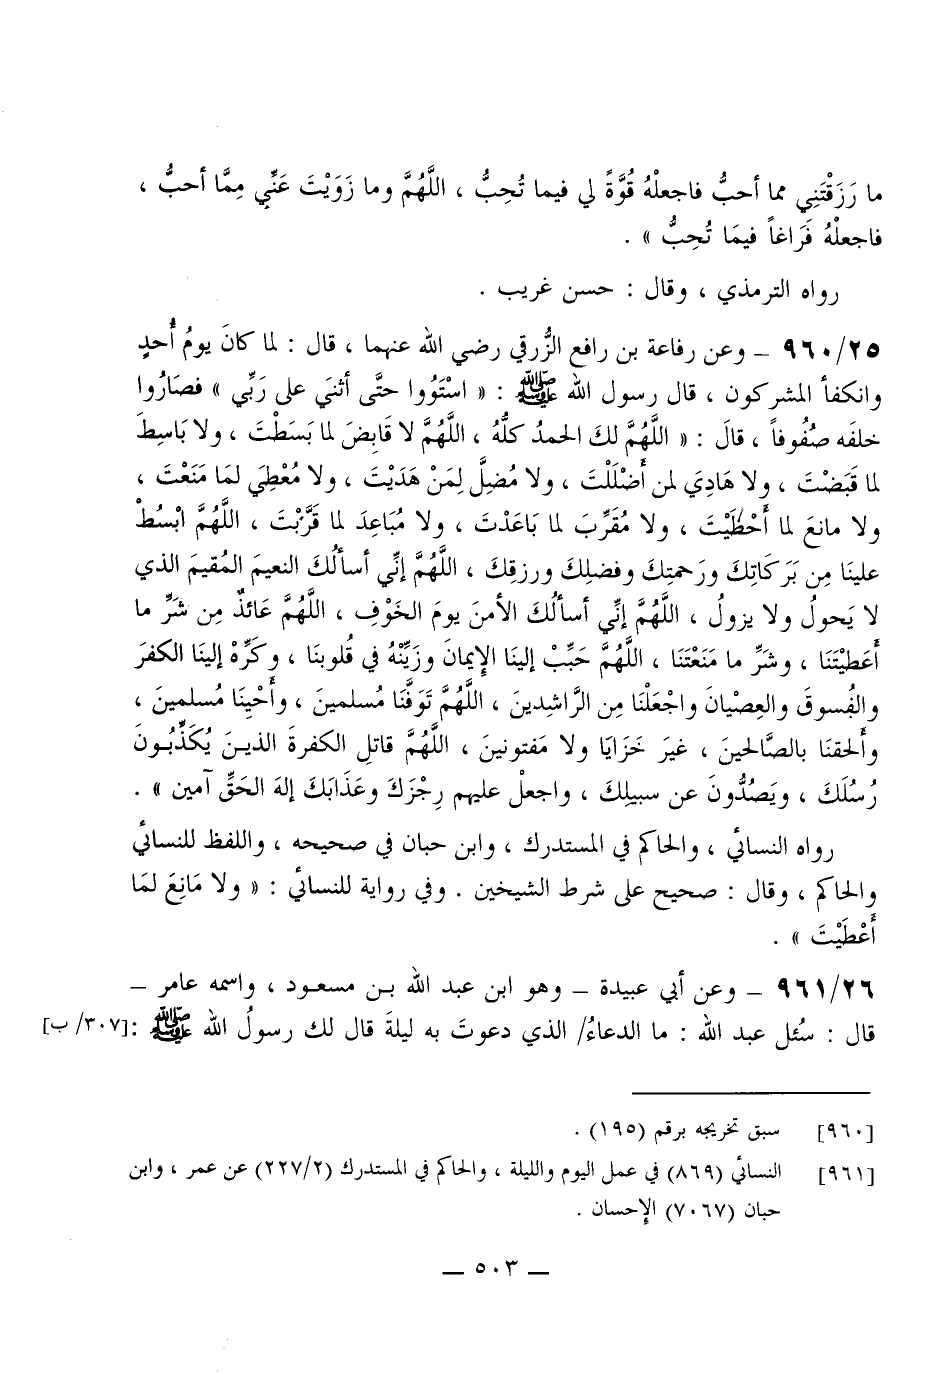 ما رَزَقْتَنِي مما أحبُّ فاجعلْهُ قُوَّةً لي فيما تُحِبُّ ، اللَّهُمَّ وما زَوَيْتَ عَنِّي مِمَّا أحبُّ ،
فاجعلْهُ فَرَاغاً فيمَا تُحِبُّ » .
رواه الترمذي ، وقال : حسن غريب .
٩٦٠/٢٥ ــ وعن رفاعة بن رافع الزُّرقي رضي الله عنهما ، قال : لما كانَ يومُ أُحدٍ
وانكفأ المشركون ، قال رسول الله ﷺ : « اسْتَوُوا حتَّى أثنيَ على رَبِّي » فصَارُوا
خلفَه صُفُوفاً ، قالَ : « اللَّهُمَّ لكَ الحمدُ كلُّهُ ، اللَّهُمَّ لا قَابِضَ لما بَسَطْتَ ، ولا بَاسِطَ
لما قَبَضْتَ ، ولا هَادِيَ لمن أَضْلَلْتَ ، ولا مُضِلَّ لِمَنْ هَدَيْتَ ، ولا مُعْطِيَ لمَا مَنَعْتَ ،
ولا مانعَ لما أَحْظَيْتَ ، ولا مُقَرِّبَ لما بَاعَدْتَ ، ولا مُبَاعِدَ لما قَرَّبْتَ ، اللَّهُمَّ ابْسُطْ
علينَا مِن بَرَكَاتِكَ ورَحمتِكَ وفضلِكَ ورزقِكَ ، اللَّهُمَّ إنِّي أسألُكَ النعيمَ المُقيمَ الذي
لا يَحولُ ولا يزولُ ، اللَّهُمَّ إنِّي أسألُكَ الأمنَ يومَ الخَوْفِ ، اللَّهُمَّ عَائذٌ مِن شَرِّ ما
أَعَطيْتَنَا ، وشَرِّ ما مَنَعْتَنَا ، اللَّهُمَّ حَبِّبْ إلينَا الإيمانَ وزَيِّنْهُ في قُلوبنَا ، وكَرِّهْ إلينَا الكفرَ
والفُسوقَ والعِصْيانَ واجْعَلْنَا مِن الرَّاشِدينَ ، اللَّهُمَّ تَوَفَّنَا مُسلمينَ ، وأَحْيِنَا مُسلمينَ ،
وأَلحقنَا بالصَّالحينَ ، غيرَ خَزَايَا ولا مَفتونينَ ، اللَّهُمَّ قاتلِ الكفرةَ الذينَ يُكَذِّبُونَ
رُسُلَكَ ، ويَصُدُّونَ عن سبيلِكَ ، واجعلْ عليهم رِجْزَكَ وعَذَابَكَ إلهَ الحَقِّ آمين » .
رواه النسائي ، والحاكم في المستدرك ، وابن حبان في صحيحه ، واللفظ للنسائي
والحاكم ، وقال : صحيح على شرط الشيخين . وفي رواية للنسائي : « ولا مَانِعَ لمَا
أَعْطَيْتَ » .
٩٦١/٢٦ ــ وعن أبي عبيدة ــ وهو ابن عبد الله بـن مسعـود ، واسمه عامر ــ
قال : سُئل عبد الله : ما الدعاءُ/ الذي دعوتَ به ليلةَ قال لك رسولُ الله ﷺ :[٣٠٧/ ب]
[٩٦٠] سبق تخريجه برقم (١٩٥) .
[٩٦١] النسائي (٨٦٩) في عمل اليوم والليلة ، والحاكم في المستدرك (٢٢٧/٢) عن عمر ، وابن
حبان (٧٠٦٧) الإحسان .
ــ ٥٠٣ ــ